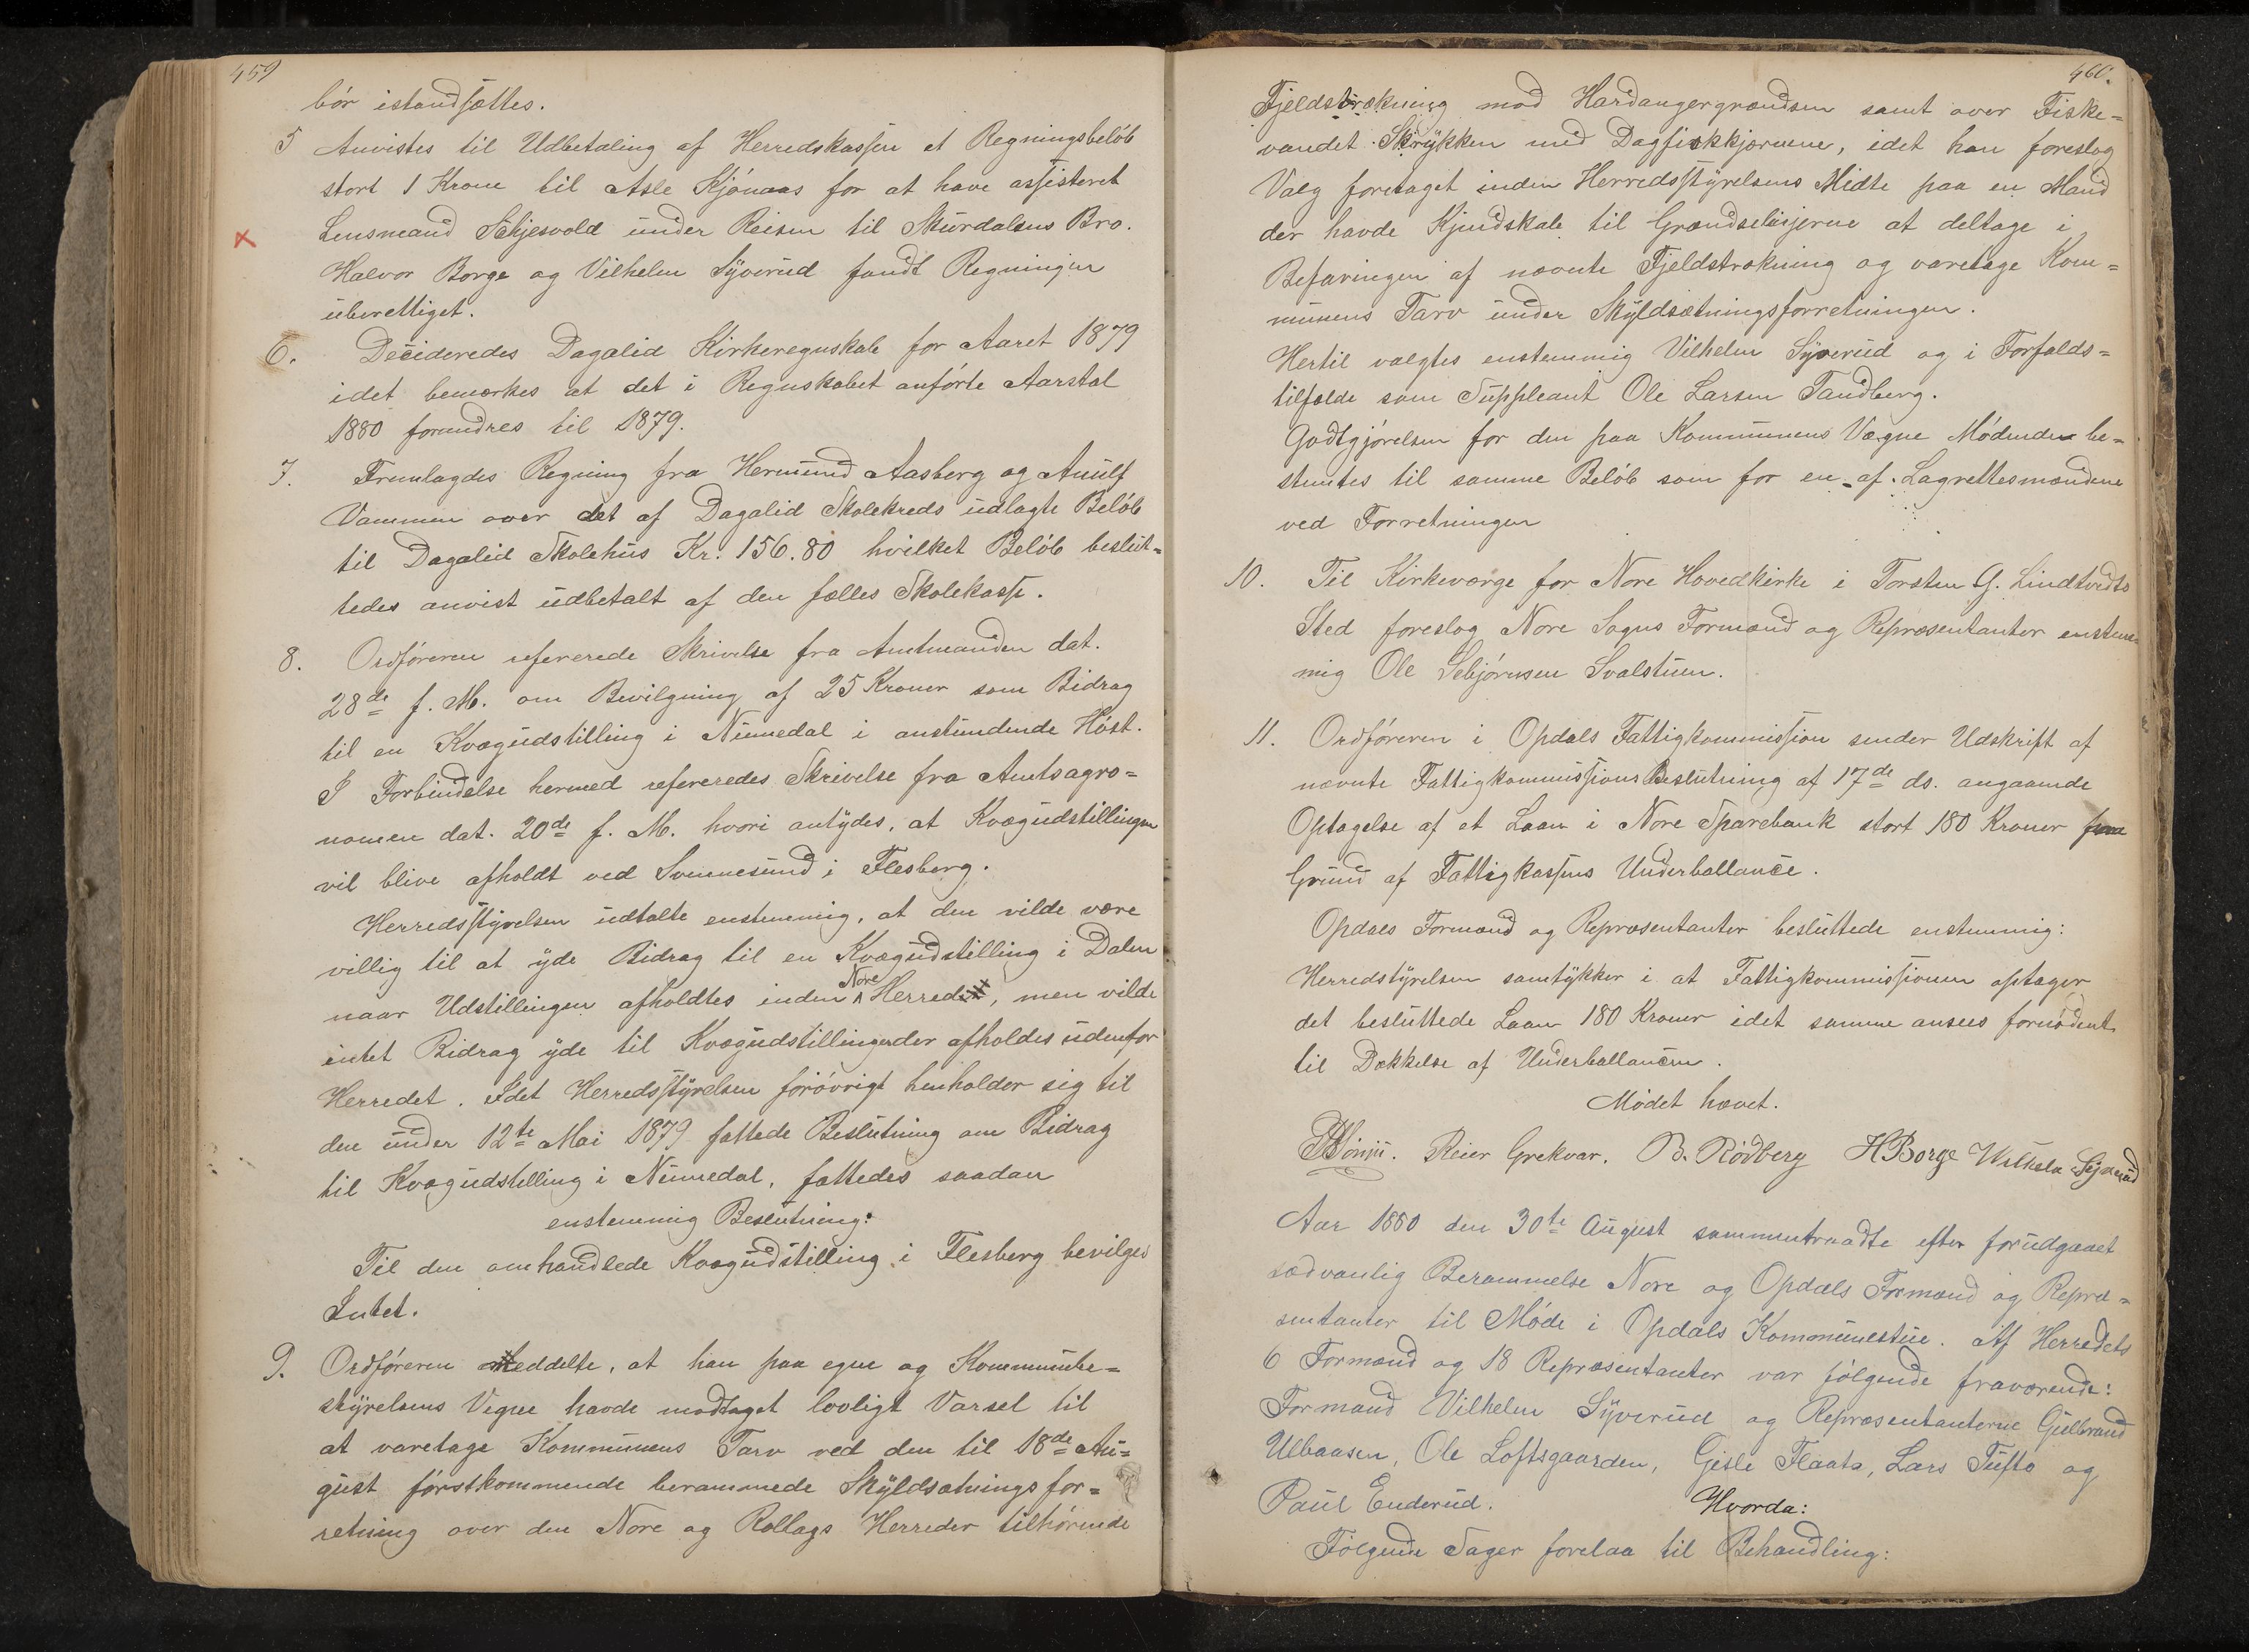 459
bör istandsættes.
5 Anvistes til Udbetaling af Herredskassen et Regningsbelöb
stort 1 Krone til Asle Kjönaas for at have assisteret
Lensmand Schjesvold under Reisen til Skurdalens Bro.
Halvor Borge og Vilhelm Syverud fandt Regningen
uberettiget.
6. Decideredes Dagalid Kirkeregnskab for Aaret 1879
idet bemærkes at det i Regnskabet anförte Aarstal
1880 forandres til 1879.
7. Fremlagdes Regning fra Hermund Aasberg og Anulf
Vammen over det af Dagalid Skolekreds udlagte Belöb
til Dagalid Skolehus Kr. 156.80 hvilket Belöb beslut=
tedes anvist udbetalt af den fælles Skolekasse.
8. Ordföreren refererede Skrivelse fra Amtmanden dat.
28de f. M. om Bevilgning af 25 Kroner som Bidrag
til en Kvægudstilling i Numedal i anstundende Höst.
I Forbindelse hermed refereredes Skrivelse fra Amtsagro=
nomen dat. 20de f. M. hvori antydes, at Kvægudstillingen
vil blive afholdt ved Svennesund i Flesberg.
Herredsstyrelsen udtalte enstemmig, at den vilde være
villig til at yde Bidrag til en Kvægudstilling i Dalen
naar Udstillingen afholdtes inden Nore Herred, men vilde
intet Bidrag yde til Kvægudstillinger der afholdes udenfor
Herredet. Idet Herredsstyrelsen forövrigt henholder sig til
den under 12te Mai 1879 fattede Beslutning om Bidrag
til Kvægudstilling i Numedal, fattedes saadan
enstemmig Beslutning:
Til den omhandlede Kvægudstilling i Flesberg bevilges
Intet.
9. Ordföreren meddelte, at han paa egne og Kommunebe=
styrelsens Vegne havde modtaget lovligt Varsel til
at varetage Kommunens Tarv ved den til 18de Au=
gust förstkommende berammede Skyldsætningsfor=
retning over den Nore og Rollags Herreder tilhörende
460.
Fjeldstrækning mod Hardangergrændsen samt over Fiske=
vandet Skrykken med Dagfiskkjærnene, idet han foreslog
Valg foretaget inden Herredsstyrelsens Midte paa en Mand
der havde Kjendskab til Grændselinjerne at deltage i
Befaringen af nævnte Fjeldstrækning og varetage Kom=
munens Tarv under Skyldsætningsforretningen.
Hertil valgtes enstemmig Vilhelm Syverud og i Forfalds=
tilfælde som Suppleant Ole Larsen Tandberg.
Godtgjörelsen for den paa Kommunens Vægne Mödende be=
stemtes til samme Belöb som for en af Lagrettesmændene
ved Forretningen
10. Til Kirkeværge for Nore Hovedkirke i Torsten G. Lindtvedts
Sted foreslog Nore Sogns Formænd og Repræsentanter enstem
mig Ole Sebjörnsen Svalstuen.
11. Ordföreren i Opdals Fattigkommission sender Udskrift af
nævnte Fattigkommissions Beslutning af 17de ds. angaaende
Optagelse af et Laan i Nore Sparebank stort 180 Kroner paa
Grund af Fattigkassens Underballance.
Opdals Formænd og Repræsentanter besluttede enstemmig:
Herredstyrelsen samtykker i at Fattigkommissionen optager
det besluttede Laan 180 Kroner idet samme ansees fornödent
til Dækkelse af Underballancen.
Mödet hævet.
Reier Grekvar. B. Rödberg H Borge Wilhelm Syverud
Aar 1880 den 30te August sammentraadte efter forudgaaet
sædvanlig Berammelse Nore og Opdals Formænd og Repræ=
sentanter til Möde i Opdals Kommunestue. Af Herredets
6 Formænd og 18 Repræsentanter var fölgende fraværende:
Formand Vilhelm Syverud og Repræsentanterne Gulbrand
Ulbaasen, Ole Loftsgaarden, Gisle Flaata, Lars Tufto og
Paul Enderud. Hvorda:
Fölgende Sager forelaa til Behandling: